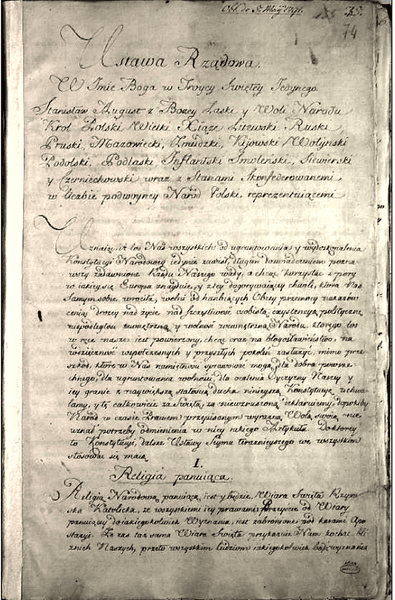 Ustawa Rządowa.
W Imie Boga w Troycy Swiętey Jedynego.
Stanisław August z Bożey Łaski y Woli Narodu
Krol Polski Wielki Xiąże Litewski Ruski
Pruski, Mazowiecki, Żmudzki, Kijowski Wołyński
Podolski, Podlaski Inflantski Smoleński, Siewierski
y Czerniechowski wraz z Stanami Skonfederowanemi
w liczbie podwoyney Narod Polski reprezentuiącemi
Uznaiąc iż los Nas wszystkich od ugruntowania y wydoskonalenia
Konstytucyi Narodowey iedynie zawisł, długim doswiadczeniem pozna-
wszy zadawnione Rządu Naszego wady, a chcąc korzystać z pory
w iakiey się Europa znayduie, y z tey dogorywaiącey chwili, ktora Nas
Samym sobie wrociła, wolni od hanbiących Obcey przemocy nakazow
ceniąc drożey nad życie nad Szczęśliwość osobistą, exystencyą polityczną
niepodległość zewnętrzną y wolność wewnętrzną Narodu, ktorego los
w ręce nasze iest powierzony, chcąc oraz na błogosławieństwo, na
wdzięczność wspołczesnych y przyszłych pokoleń zasłużyć, mimo prze-
szkod, ktore w Nas namiętności sprawować mogą, dla dobra powsze-
chnego, dla ugruntowania wolności, dla ocalenia Oyczyzny Naszey y
iey granic z naywiększą stałością ducha ninieyszą Konstytucyą uchwa-
lamy, y tę całkowicie za Swiętą, za niewzruszoną deklaruiemy, dopokiby
Narod w czasie Prawem przepisanym wyraźną Wolą swoią nie
uznał potrzeby odmienienia w niey iakiego Artykułu. Do ktorey
to Konstytucyi, dalsze Ustawy Seymu teraznieyszego we wszystkim
stosować się maią.
I.
Religia panuiąca.
Religią Narodową panuiącą iest y będzie Wiara Swięta Rzym-
ska Katolicka, ze wszystkiemi iey prawami, Przeyście od Wiary
panuiącey do iakiegokolwiek Wyznania, iest zabronione pod karami Apo-
stazyi. Że zaś taż sama Wiara Swięta przykazuie Nam kochać bli-
znich Naszych, przeto wszystkim ludziom iakiegokolwiek bądź wyznania